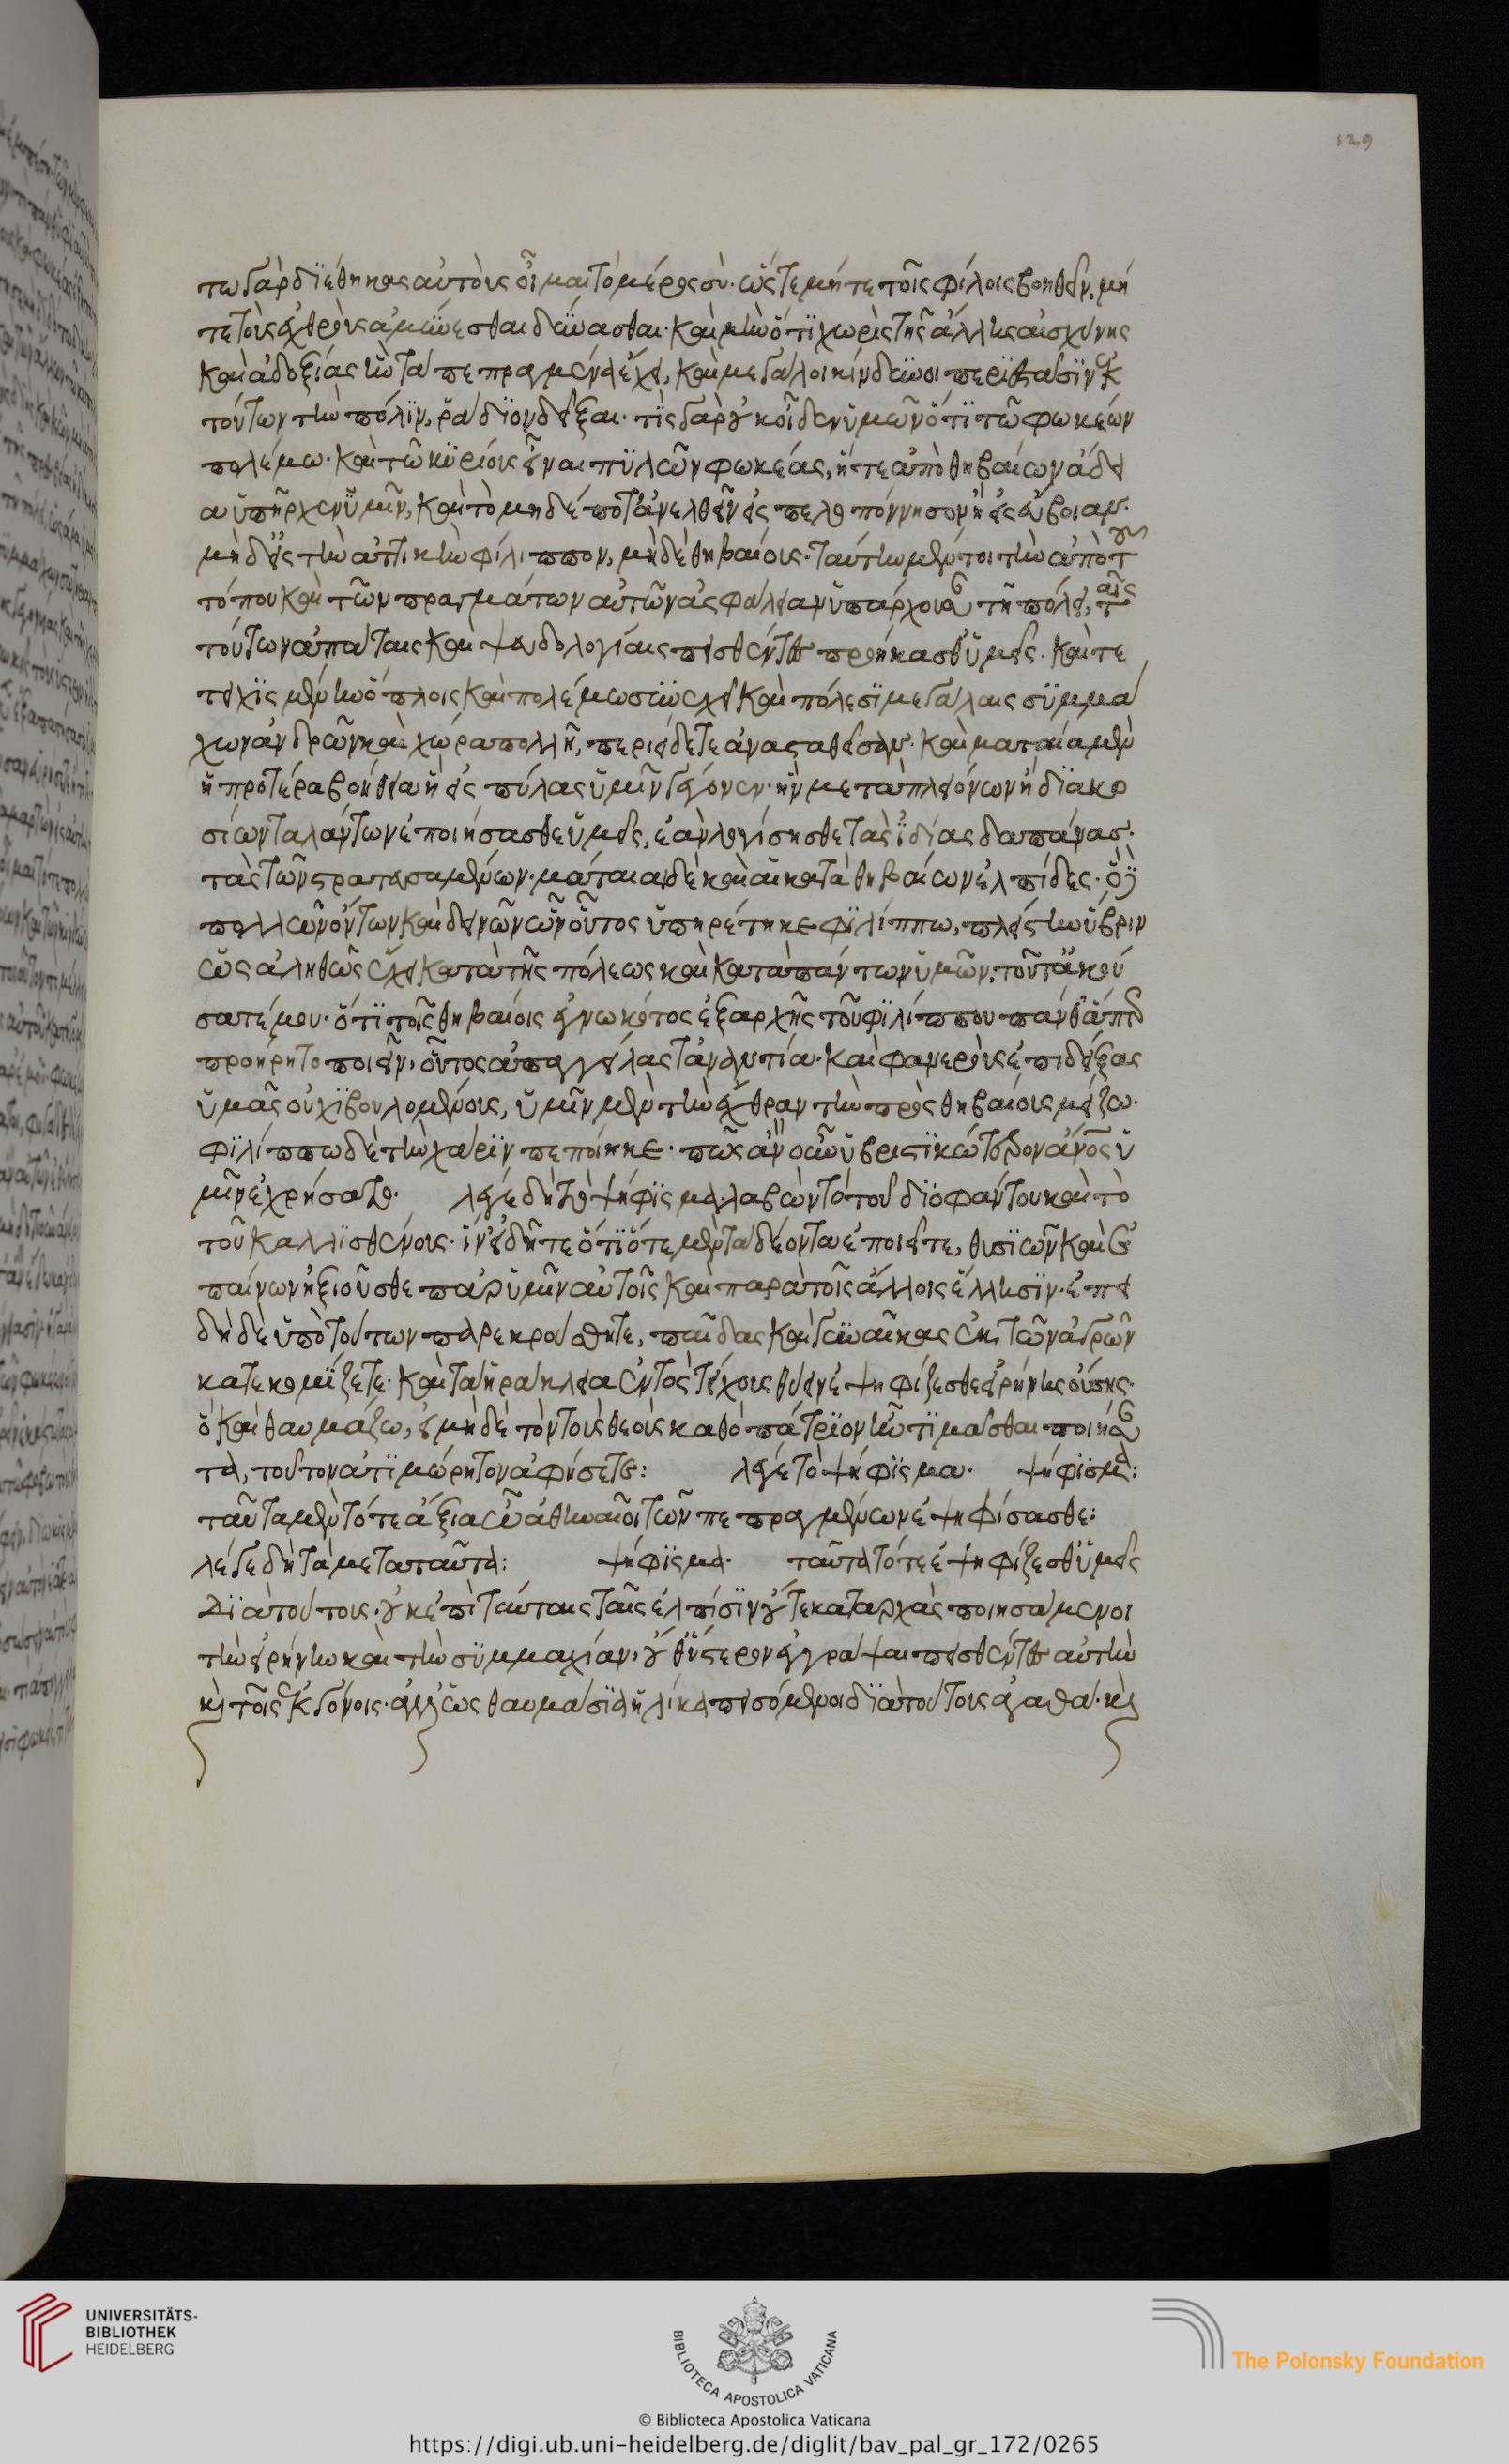 τω γὰρ διέθηκας αὐτοὺς οἶμαι τὸ μέρος σύ· ὥστε μήτε τοῖς φίλοις βοηθεῖν, μή
τε τοὺς ἐχθροὺς ἀμύνεσθαι δύνασθαι· καὶ μὴν ὅτι χωρὶς τῆς ἄλλης αἰσχύνης
καὶ ἀδοξίας ἣν τὰ πεπραγμένα ἔχει, καὶ μεγάλοι κίνδυνοι περιεστᾶσιν ἐκ
τούτων τὴν πόλιν, ῥάδιον δεῖξαι· τίς γὰρ οὐκ οἶδεν ὑμῶν ὅτι τῶ φωκέων
πολέμω· καὶ τῶ κυρίους εἶναι πυλῶν φωκέας, ἥ τε ἀπὸ θηβαίων ἄδει
α ὑπῆρχεν ὑμῖν, καὶ τὸ μηδέποτ' ἂν ἐλθεῖν εἰς πελοπόννησον ἢ εἰς εὔβοιαν·
μηδ' εἰς τὴν ἀττικὴν φίλιππον, μηδὲ θηβαίους· ταύτην μέντοι τὴν ἀπὸ τοῦ
τόπου καὶ τῶν πραγμάτων αὐτῶν ἀσφάλειαν ὑπάρχουσαν τῆ πόλει, ταῖς
τούτων ἀπάταις καὶ ψευδολογίαις πεισθέντες προήκασθ' ὑμεῖς· καὶ τε
τειχισμένην ὅπλοις καὶ πολέμω συνεχεῖ καὶ πόλεσι μεγάλαις συμμά
χων ἀνδρῶν καὶ χώρα πολλῆ, περιείδετε ἀνασταθεῖσαν· καὶ ματαία μὲν
ἡ προτέρα βοήθεια ἡ εἰς πύλας ὑμῖν γέγονεν· ἣν μετὰ πλειόνων ἢ διακο
σίων ταλάντων ἐποιήσασθε ὑμεῖς, ἐὰν λογίσησθε τὰς ἰδίας δαπάνας·
τὰς τῶν στρατευσαμένων· μάταιαι δὲ καὶ αἱ κατὰ θηβαίων ἐλπίδες· ὃ δὲ
πολλῶν ὄντων καὶ δεινῶν ὧν οὗτος ὑπηρέτηκε φιλίππω, πλείστην ὕβριν
ὡς ἀληθῶς ἔχει κατὰ τῆς πόλεως καὶ κατὰ πάντων ὑμῶν, τοῦτ' ἀκού
σατέ μου· ὅτι τοῖς θηβαίοις ἐγνωκότος ἐξαρχῆς τοῦ φιλίππου πάνθ' ἅπερ
προήρητο ποιεῖν, οὗτος ἀπαγγείλας τἀναντία· καὶ φανεροὺς ἐπιδείξας
ὑμᾶς οὐχὶ βουλομένους, ὑμῖν μὲν τὴν ἔχθραν τὴν πρὸς θηβαίους μείζω·
φιλίππω δὲ τὴν χάριν πεποίηκε· πῶς ἂν οὖν ὑβριστικώτερον ἄνος ὑ
μῖν ἐχρήσατο· λέγε δὴ τὸ ψήφισμα· λαβὼν τὸ τοῦ διοφάντου καὶ τὸ
τοῦ καλλισθένους· ἵν' εἰδῆτε ὅτι ὅτε μὲν τὰ δέοντα ἐποιεῖτε, θυσιῶν καὶ ἐ
παίνων ἠξιοῦσθε παρ' ὑμῖν αὐτοῖς καὶ παρὰ τοῖς ἄλλοις ἕλλησιν· ἐπει
δὴ δὲ ὑπὸ τούτων παρεκρούσθητε, παῖδας καὶ γυναῖκας ἐκ τῶν ἀγρῶν
κατεκομίζετε· καὶ τὰ ἡράκλεια ἐντὸς τείχους θύειν ἐψηφίζεσθε εἰρήνης οὔσης·
ὃ καὶ θαυμάζω, εἰ μηδὲ τὸν τοὺς θεοὺς καθὸ πάτριον ἦν τιμᾶσθαι ποιήσαν
τα, τοῦτον ἀτιμώρητον ἀφήσετε: λέγε τὸ ψήφισμα· ψήφισμα:
ταῦτα μὲν τότε ἄξια ὦ ἄνδρες ἀθηναῖοι τῶν πεπραγμένων ἐψηφίσασθε:
λέγε δὴ τὰ μετὰ ταῦτα: ψήφισμα· ταῦτα τότε ἐψηφίζεσθ' ὑμεῖς
διὰ τούτους· οὐκ ἐπὶ ταύταις ταῖς ἐλπίσιν οὔτε καταρχὰς ποιησάμενοι
τὴν εἰρήνην καὶ τὴν συμμαχίαν, οὔθ' ὕστερον ἐγγράψαι πεισθέντες αὐτὴν
καὶ τοῖς ἐκγόνοις· ἀλλ' ὡς θαυμάσια ἡλίκα πεισόμενοι διὰ τούτους ἀγαθά· καὶ
129
UNIVERSITÄTS-
BIBLIOTHEK
HEIDELBERG
BIBLIOTECA APOSTOLICA VATICANA
The Polonsky Foundation
© Biblioteca Apostolica Vaticana
https://digi.ub.uni-heidelberg.de/diglit/bav_pal_gr_172/0265